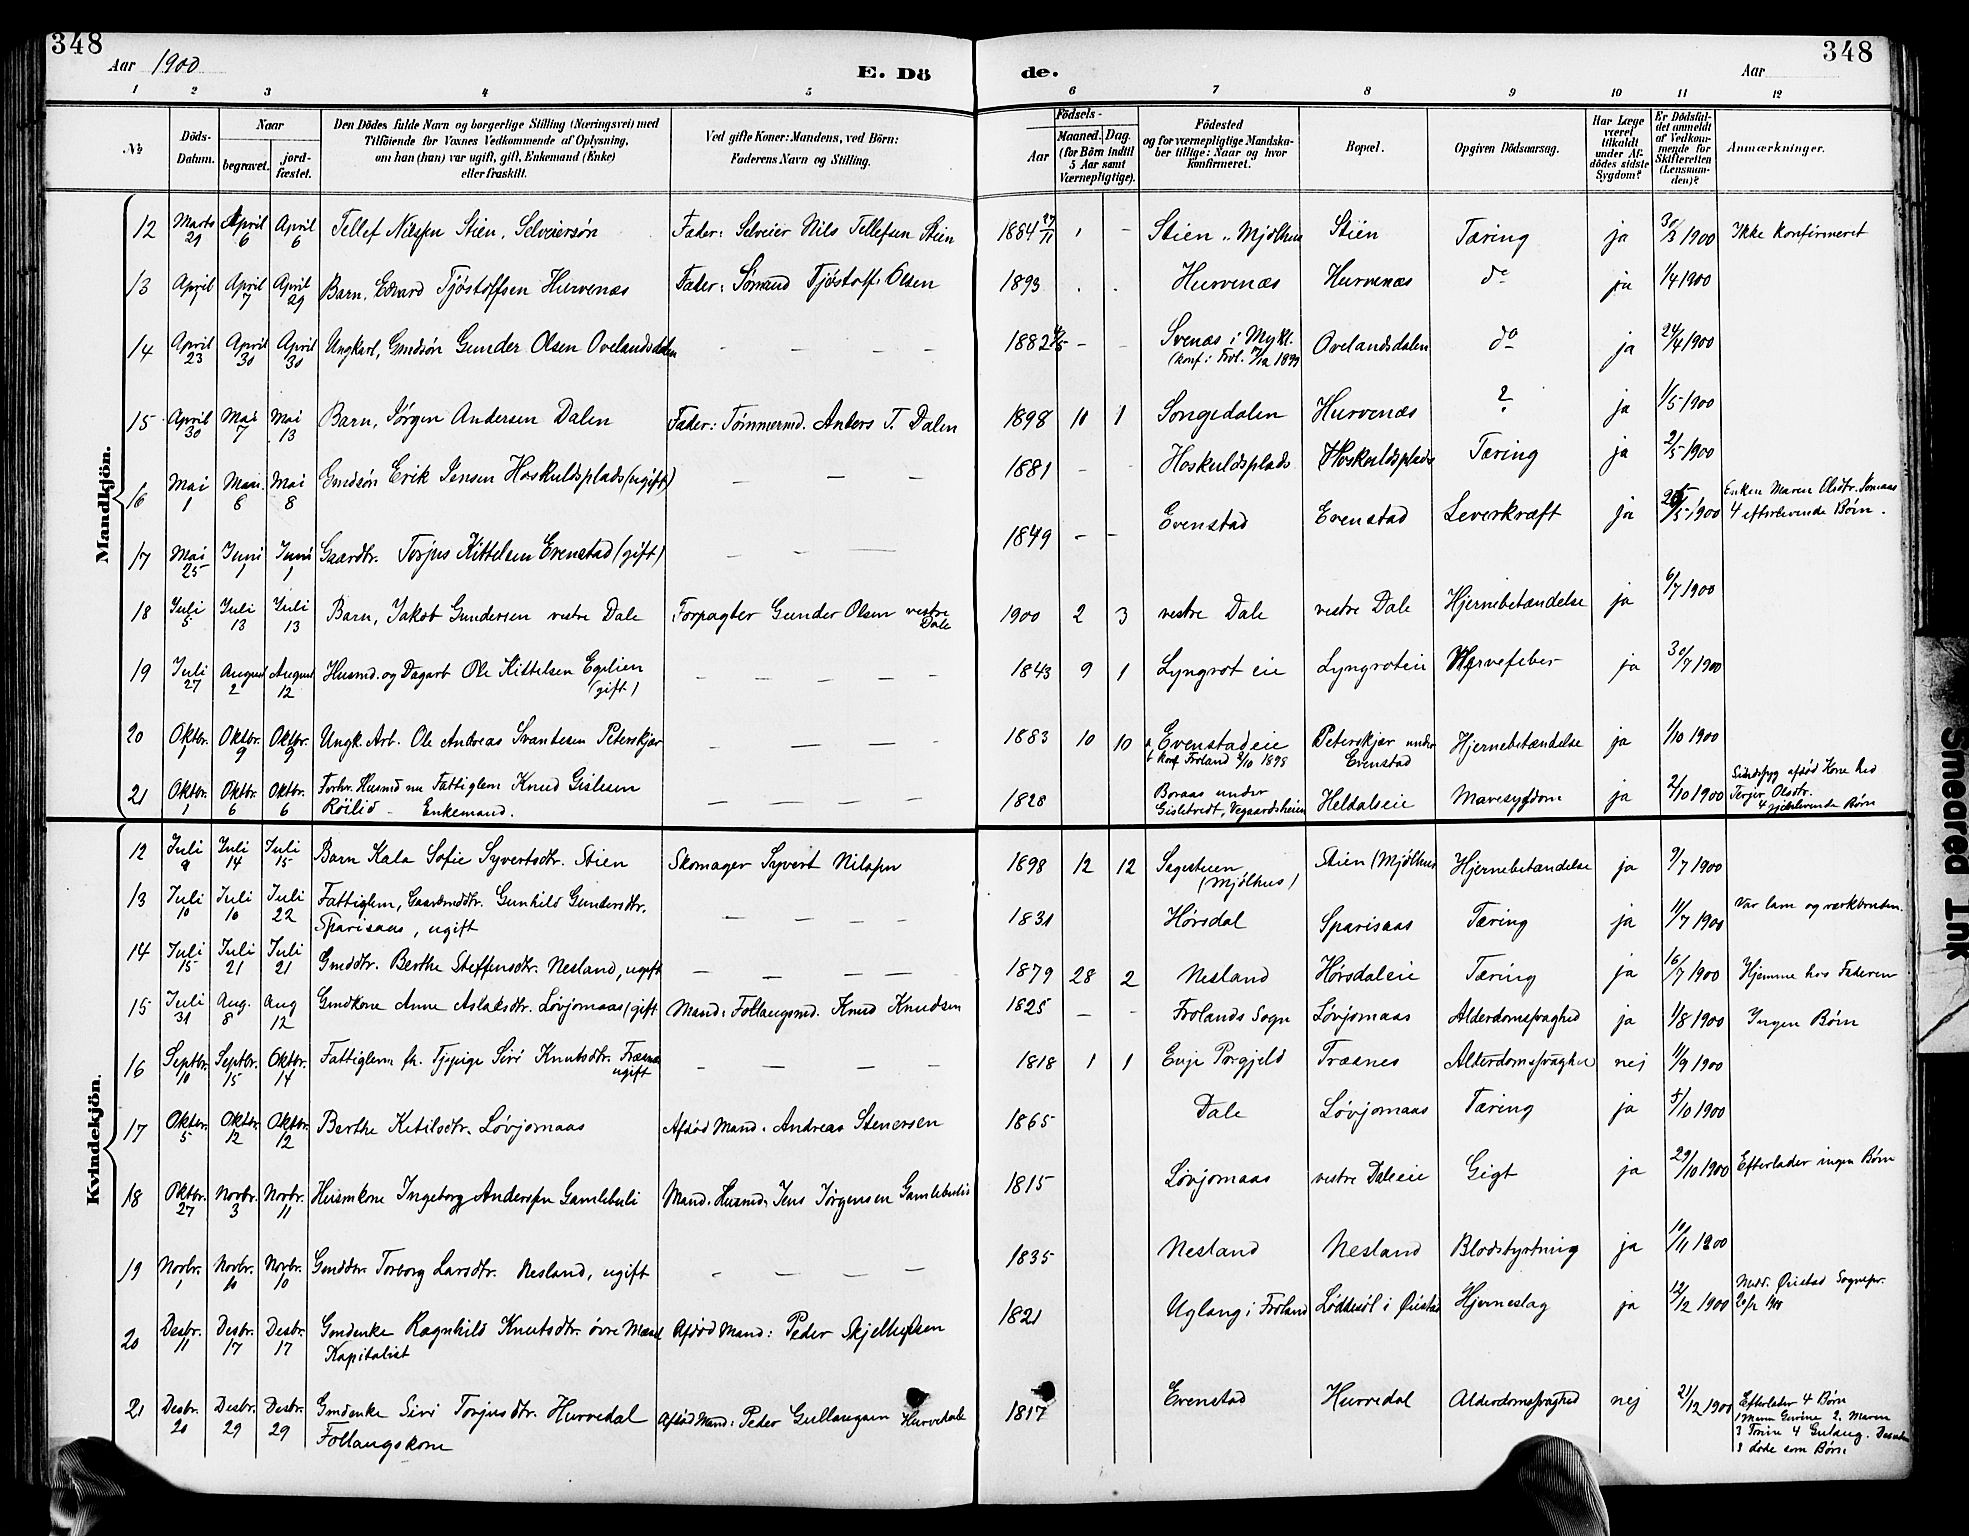 348
348
Aar 1900
E. Dö
de.
Aar
1 2 3 4 5 6 7 8 9 10 11 12
№
Döds-Datum.
Naar
begravet.
jordfæstet.
Den Dödes fulde Navn og borgerlige Stilling (Næringsvei) med
Tilföiende for Voxnes Vedkommende af Oplysning,
om han (hun) var ugift, gift, Enkemand (Enke)
eller fraskilt.
Ved gifte Koner: Mandens, ved Börn:
Faderens Navn og Stilling.
Födsels-
Aar
Maaned. Dag.
(for Börn indtil
5 Aar samt
Værnepligtige).
Födested
og for værnepligtige Mandska-
ber tillige: Naar og hvor
konfirmeret.
Bopæl.
Opgiven Dödsaarsag.
Har Læge
været
tilkaldt
under Af-
dödes sidste
Sygdom?
Er Dödsfal-
det anmeldt
af Vedkom-
mende for
Skifteretten
(Lensman-
den)?
Anmærkninger.
Mandkjön.
12 Marts 29 April 6 April 6 Tellef Nilssen Stien, Selveiersøn Fader: Selveier Nils Tellefsen Stien 1884 27/11 Stien i Mjølhus Stien Tæring ja 30/3 1900 Ikke konfirmeret
13 April 1 April 7 April 29 Barn, Edvard Tjøstolfsen Hurvenæs Fader: Sømand Tjøstolf Olsen 1893 Hurvenæs Hurvenæs do ja 1/4 1900
14 April 23 April 30 April 30 Ungkarl, Gmdsøn Gunder Olsen Ovelandsdalen — — — — 1882 — — Svenæs i Mykl. Ovelandsdalen do ja 24/4 1900
15 April 30 Mai 7 Mai 13 Barn, Jørgen Andersen Dalen Fader: Tømmermd. Anders T. Dalen 1898 10 1 Songedalen Hurvenæs ? ja 1/5 1900
16 Mai 1 Mai 8 Mai 8 Gmdsøn Erik Jensen Hoskuldsplads (ugift) — — — 1881 - - Hoskuldsplads Hoskuldsplads Tæring ja 2/5 1900
17 Mai 25 Juni 1 Juni 1 Gaardbr. Torjus Kittelsen Evenstad (gift) — — — 1849 - - Evenstad Evenstad Leverkræft ja Enken Maren Olsdtr.
4 efterlevende Børn.
18 Juli 5 Juli 13 Juli 13 Barn, Jakob Gundersen vestre Dale Forpagter Gunder Olsen vestre Dale 1900 2 3 vestre Dale vestre Dale Hjernebetændelse ja 6/7 1900
19 Juli 27 August 2 August 12 Husmd. og Dagarb Ole Kittelsen Egelien (gift) — — — — 1843 9 1 Lyngrot eie Lyngroteie Nervefeber ja 30/7 1900
20 Oktbr. Oktbr. 9 Oktbr. 9 Ungk. Arb. Ole Andreas Svantesen Peterskjær — — — — 1883 10 10 Evenstadeie
konf Froland Peterskjær under
Evenstad Hjernebetændelse ja 1/10 1900
21 Oktbr. 1 Oktbr. 6 Oktbr. 6 Forhv. Husmd nu Fattiglem Knud Gislesen
Røilid - Enkemand. — — — — 1828 Boraas under
Vegaardsheien Heldalseie Mavesygdom ja 2/10 1900 afdød Kone hed
Olsdtr.
Kvindekjön.
12 Juli 9 Juli 14 Juli 15 Barn Kala Sofie Syvertsdtr. Stien Skomager Syvert Nilssen 1898 12 12 Sagesteien
(Mjølhus) Stien (Mjølhus Hjernebetændelse ja 9/7 1900
13 Juli 10 Juli 10 Juli 22 Fattiglem, Gaardmddtr. Gunhild Gundersdtr.
Sparisaas, ugift — — — — 1831 Hørsdal Sparisaas Tæring ja 11/7 1900 Var lam og værkbruden.
14 Juli 15 Juli 21 Juli 21 Gmddtr. Berthe Steffensdtr. Nesland, ugift — — — — 1879 28 2 Nesland Hørsdaleie Tæring ja 16/7 1900 Hjemme hos Faderen
15 Juli 31 Aug. 8 Aug 12 Gmdkone Anne Aslaksdtr. Løvjomaas (gift Mand: Follaugsmd. Knud Knudsen 1825 — - Frolands Sogn Løvjomaas Alderdomssvaghed ja 1/8 1900 Ingen Børn
16 Septbr. 10 Septbr. 15 Oktbr. 14 Fattiglem fh. Tjepige Siri Knutsdtr. Træsnes
ugift — — — — 1818 1 1 Evje Prgjeld Træanes Alderdomssvaghed nej 11/9 1900
17 Oktbr. 5 Oktbr. 12 Oktbr. 12 Berthe Ketilsdtr. Løvjomaas Afdød Mand: Andreas Stenersen 1865 Dale Løvjomaas Tæring ja 5/10 1900
18 Oktbr. 27 Novbr. 3 Novbr. 11 Husmkone Ingeborg Anderssen Gamlebuli Mand. Husmd. Jens Jørgensen Gamlebulis 1815 Løvjomaas vestre Daleeie Gigt ja 29/10 1900 Efterlader ingen Børn
19 Novbr. 1 Novbr. 10 Novbr. 10 Gmddtr Torborg Larsdtr. Nesland, ugift - — — — 1835 Nesland Nesland Blodstyrtning ja 10/11 1900
20 Desbr. 11 Desbr. 17 Desbr. 17 Gmdenke Ragnhild Knutsdtr. øvre Mæsel
Kapitalist Afdød Mand: Peder Skjellegsen 1821 Uglang i Froland Løddesøl i Øiestad Hjerneslag ja 12/12 1900 Medd. Øiestad Sognepr.
21 Desbr. 20 Desbr. 29 Desbr. 29 Gmdenke Siri Torjusdtr. Hurvedal
Follaugskone Afdød Mand: Peder Gullaugsen Hurvedale 1817 Evenstad Hurvedal Alderdomssvaghed nej 21/12 1900 Efterlader 4 Børn
1 Maren 2. Maren
3 Tonie 4 Gulaug.
3 døde som Børn
Smeared Ink